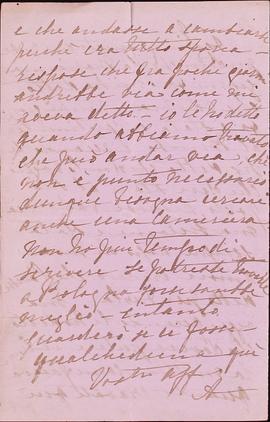 e che andasse a cambiarsi
perché era tutta sporca –
rispose che fra pochi giorni
andrebbe via come mi
aveva detto – io le ho detto
quando abbiamo trovato
che può andar via, che
non è punto necessario
dunque bisogna cercare
anche una cameriera
Non ho più tempo di
scrivere se potreste
a Bologna forse sarebbe
meglio – intanto
guarderò se ci fosse
qualcheduna qui
Vostra aff
A